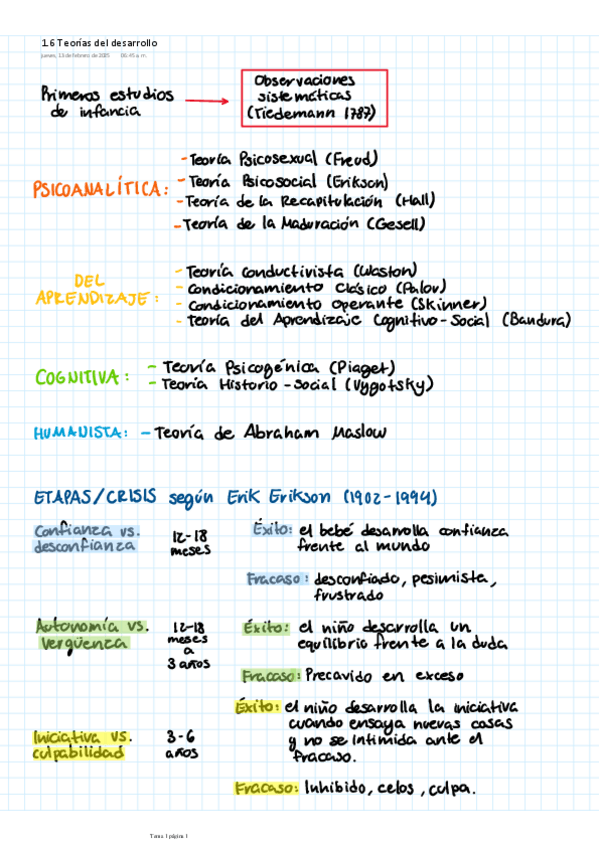 1.6 Teorías del desarrollo
jueves, 13 de febrero de 2025 06:45 a. m.
Primeros estudios de infancia
Observaciones
sistemáticas
(Tiedemann 1787)
PSICOANALÍTICA:
- Teoría Psicosexual (Freud)
- Teoría Psicosocial (Erikson)
- Teoría de la Recapitulación (Hall)
- Teoría de la Maduración (Gesell)
DEL
APRENDIZAJE:
- Teoría Conductivista (Waston)
- Condicionamiento Clásico (Palov)
- Condicionamiento Operante (Skinner)
- Teoría del Aprendizaje Cognitivo-Social (Bandura)
COGNITIVA:
- Teoría Psicogénica (Piaget)
- Teoría Historio-Social (Vygotsky)
HUMANISTA: - Teoría de Abraham Maslow
ETAPAS/CRISIS según Erik Erikson (1902-1994)
Confianza vs.
desconfianza
12-18
meses
Éxito: el bebé desarrolla confianza
frente al mundo
Fracaso: desconfiado, pesimista,
frustrado
Autonomía vs.
Vergüenza
12-18
meses
a
3 años
Éxito: el niño desarrolla un
equilibrio frente a la duda
Fracaso: Precavido en exceso
Iniciativa vs.
culpabilidad
3-6
años
Éxito: el niño desarrolla la iniciativa
cuando ensaya nuevas cosas
y no se intimida ante el
fracaso.
Fracaso: Inhibido, celos, culpa.
Tema 1 página 1